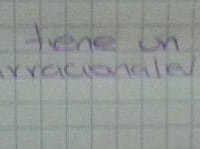 tiene un
irracionales